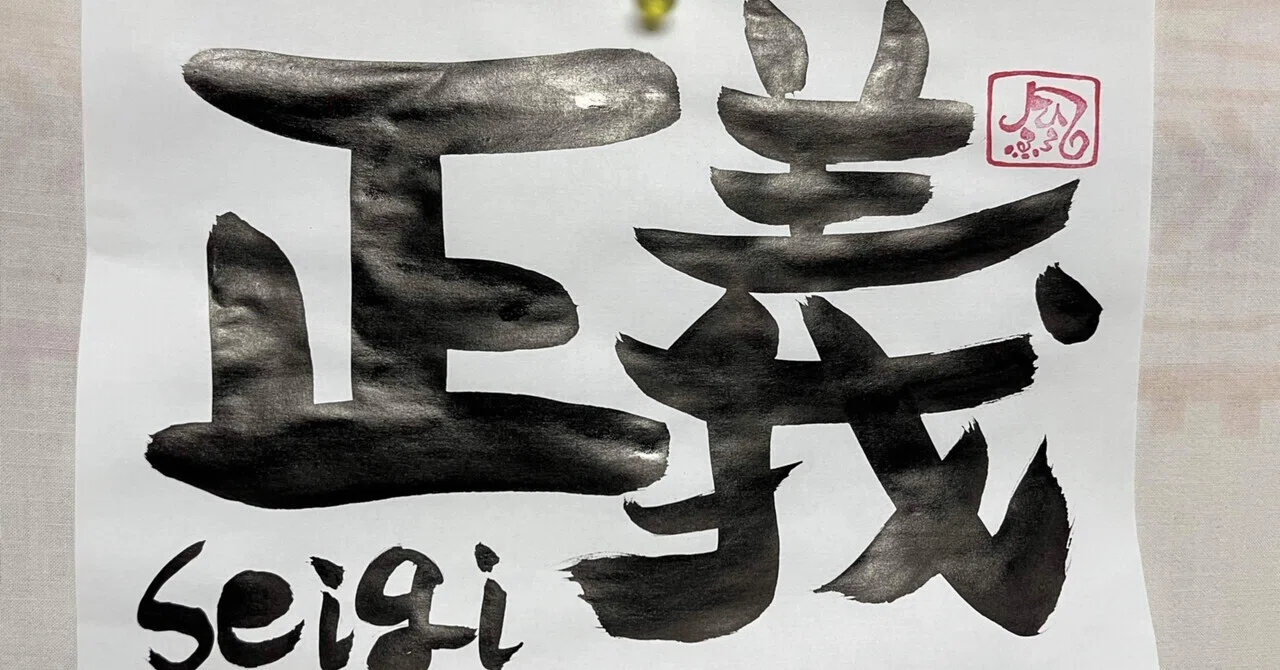 正義
seigi